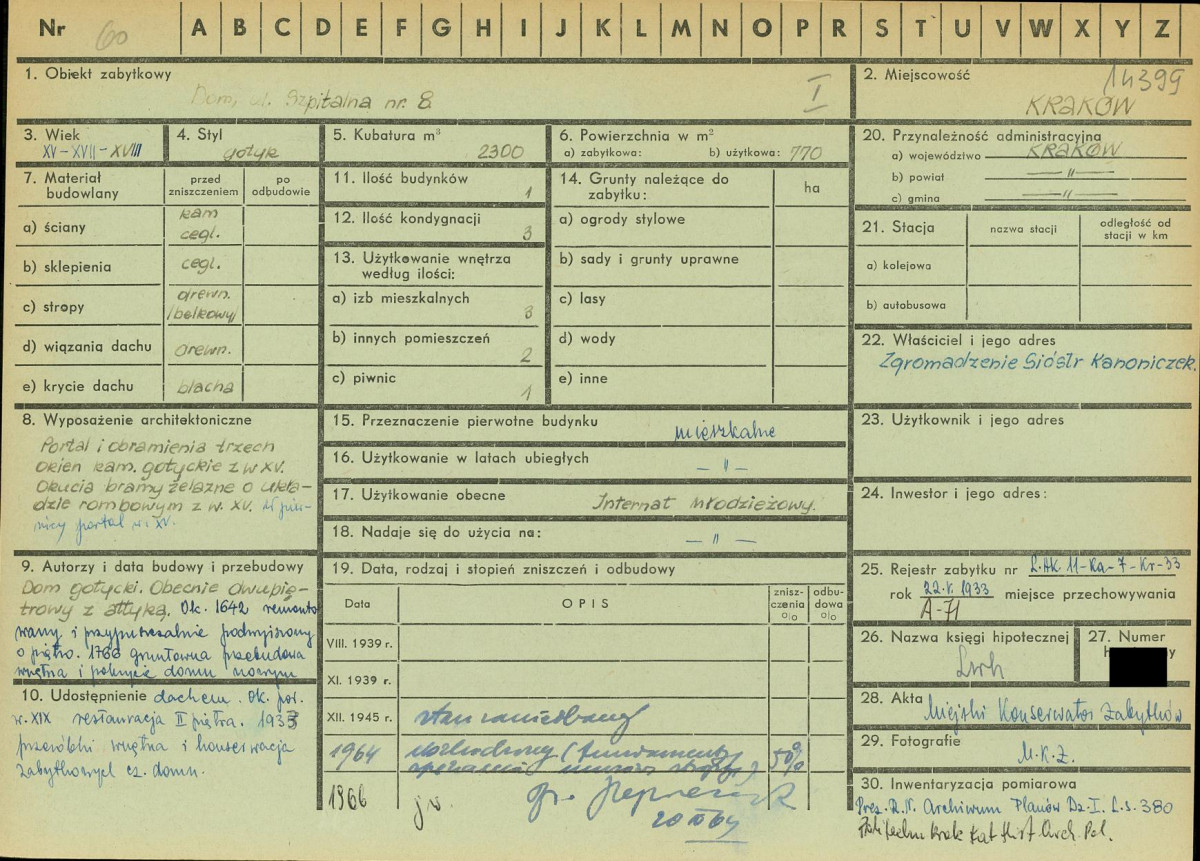 Nr 60 A B C D E F G H I J K L M N O P R S T U V W X Y Z
1. Obiekt zabytkowy
Dom, ul. Szpitalna nr. 8
I
2. Miejscowość 14399
KRAKÓW
3. Wiek
XV-XVII-XVIII
4. Styl
gotyk
5. Kubatura m³
2300
6. Powierzchnia w m²
a) zabytkowa: b) użytkowa: 770
20. Przynależność administracyjna
a) województwo KRAKÓW
b) powiat —„—
c) gmina —„—
7. Materiał budowlany
przed zniszczeniem
po odbudowie
a) ściany kam
cegl.
b) sklepienia cegl.
c) stropy drewn.
/belkowy/
d) wiązania dachu drewn.
e) krycie dachu blacha
11. Ilość budynków 1
12. Ilość kondygnacji 3
13. Użytkowanie wnętrza
według ilości:
a) izb mieszkalnych 8
b) innych pomieszczeń 2
c) piwnic 1
14. Grunty należące do
zabytku:
ha
a) ogrody stylowe
b) sady i grunty uprawne
c) lasy
d) wody
e) inne
21. Stacja
nazwa stacji
odległość od
stacji w km
a) kolejowa
b) autobusowa
22. Właściciel i jego adres
Zgromadzenie Sióstr Kanoniczek.
8. Wyposażenie architektoniczne
Portal i obramienia trzech
okien kam. gotyckie z w XV.
Okucia bramy żelazne o ukła-
dzie rombowym z w. XV. W piw-
nicy portal w. XV.
15. Przeznaczenie pierwotne budynku mieszkalne
16. Użytkowanie w latach ubiegłych —„—
17. Użytkowanie obecne Internat młodzieżowy.
18. Nadaje się do użycia na: —„—
23. Użytkownik i jego adres
24. Inwestor i jego adres:
9. Autorzy i data budowy i przebudowy
Dom gotycki. Obecnie dwupię-
trowy z attyką. Ok. 1642 remonto
wany i przypuszczalnie podwyższony
o piętro. 1766 gruntowna przebudowa
wnętrza i pokrycie domu nowym
10. Udostępnienie dachem. Ok. poł.
w. XIX restauracja II piętra. 1933
przeróbki wnętrza i konserwacja
zabytkowych cz. domu.
19. Data, rodzaj i stopień zniszczeń i odbudowy
Data
OPIS
zniszczenia %
odbudowa %
VIII. 1939 r.
XI. 1939 r.
XII. 1945 r. stan zaniedbany
1964 50%
1966
20 64
25. Rejestr zabytku nr L.AK. 11-Ka-7-Kr-33
rok 22.V.1933 miejsce przechowywania
A-71
26. Nazwa księgi hipotecznej
Lwh
27. Numer
28. Akta
Miejski Konserwator Zabytków
29. Fotografie
M.K.Z.
30. Inwentaryzacja pomiarowa
Prez. R.N. Archiwum Planów Dz. I. L.s. 380
Politechn Krak Kat Hist Arch. Pol.